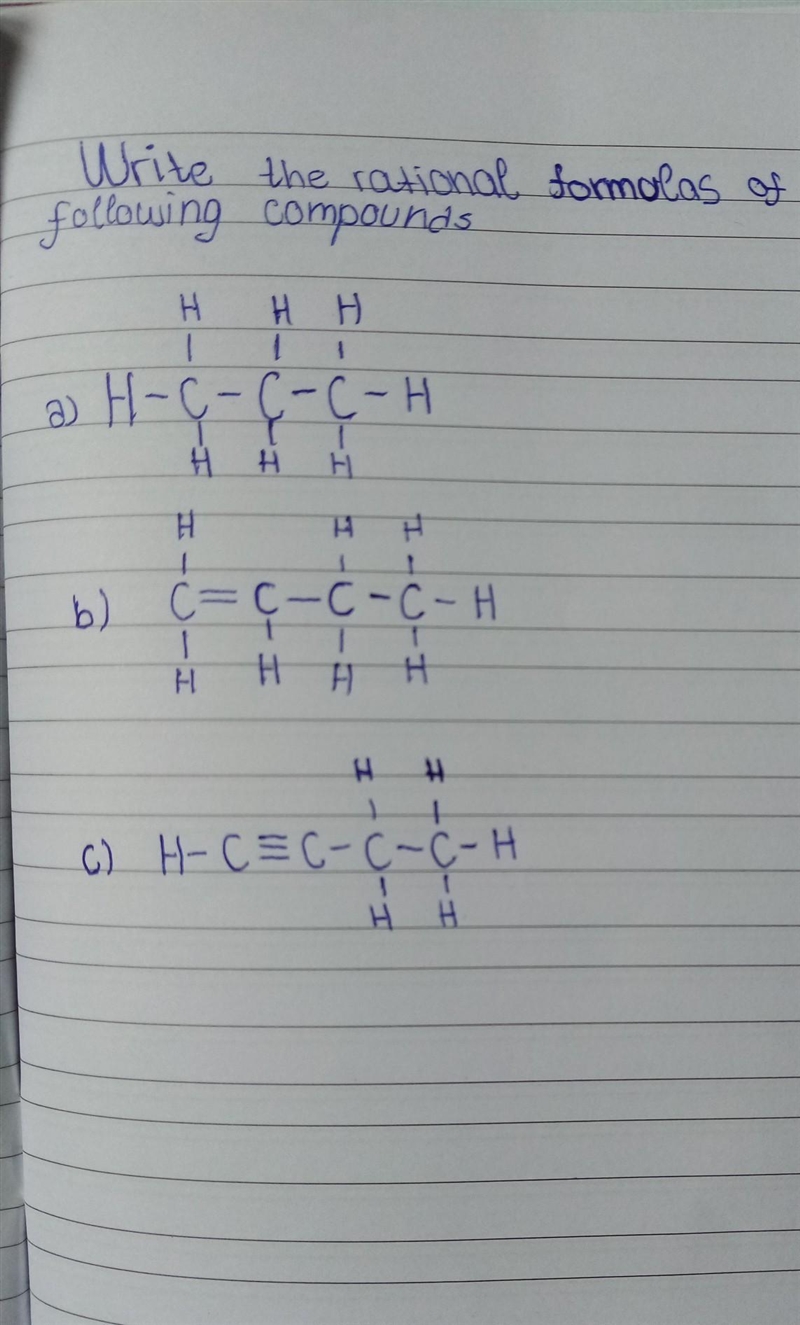 Write the rational formolas of
following compounds
H H H
| | |
a) H-C-C-C-H
| | |
H H H
H H H
| | |
b) C=C-C-C-H
| | | |
H H H H
H H
| |
c) H-C≡C-C-C-H
| |
H H